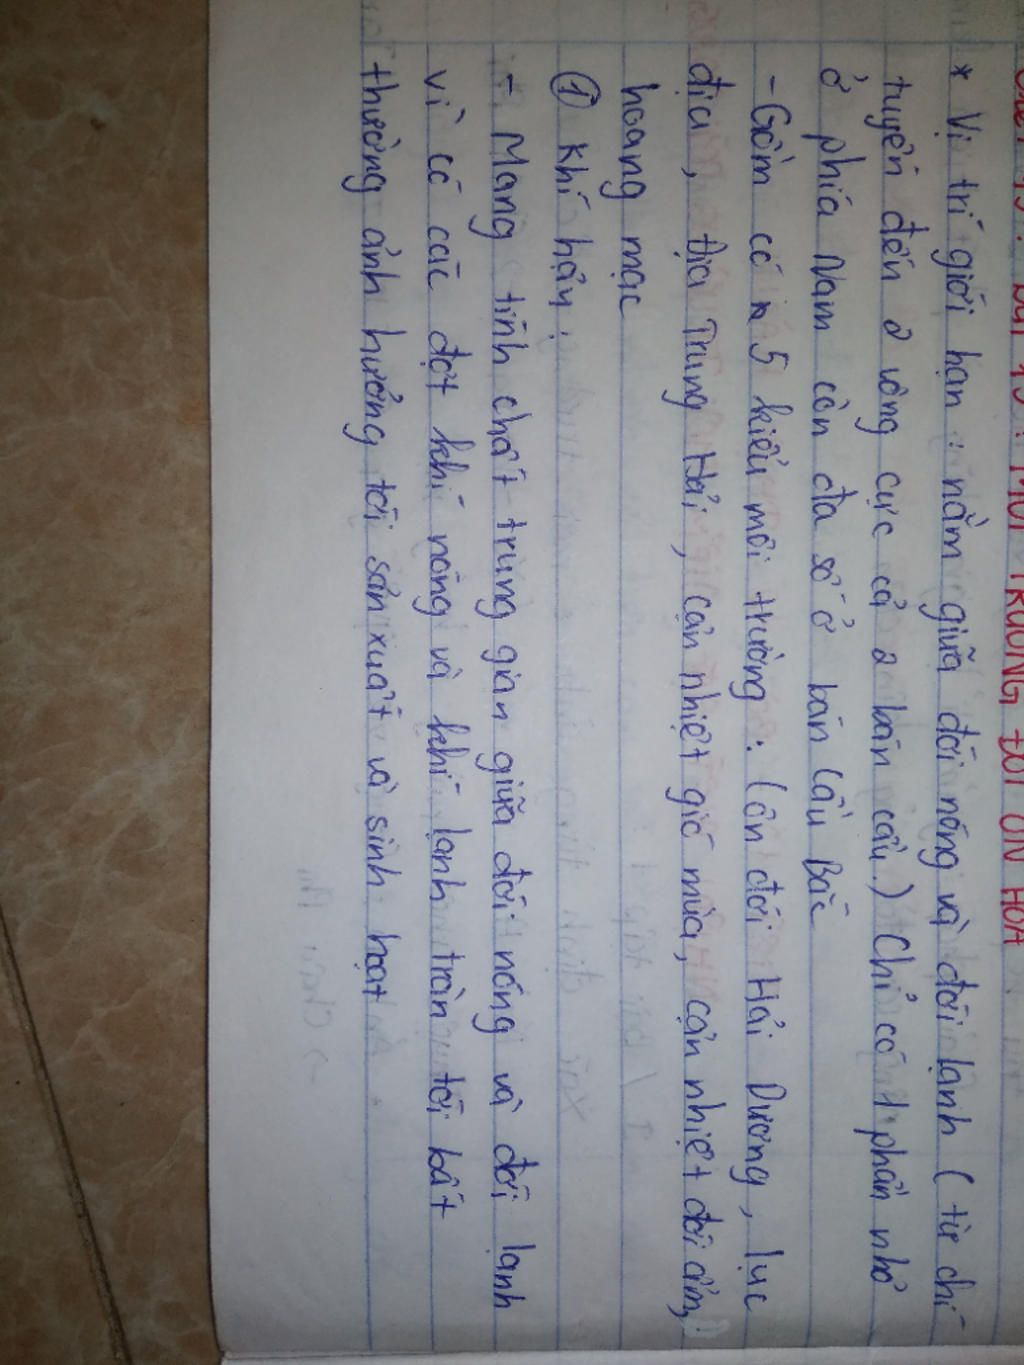 MÔI TRƯỜNG ĐỚI ÔN HÒA
* Vị trí giới hạn : nằm giữa đới nóng và đới lạnh ( từ chí
tuyến đến 2 vòng cực cả 2 bán cầu.) Chỉ có 1 phần nhỏ
ở phía Nam còn đa số ở bán cầu Bắc
- Gồm có 5 kiểu môi trường : (ôn đới Hải Dương, lục
địa, Địa Trung Hải, cận nhiệt gió mùa, cận nhiệt đới ẩm,
hoang mạc
① Khí hậu :
- Mang tính chất trung gian giữa đới nóng và đới lạnh
vì có các đợt khí nóng và khí lạnh tràn tới bất
thường ảnh hưởng tới sản xuất và sinh hoạt